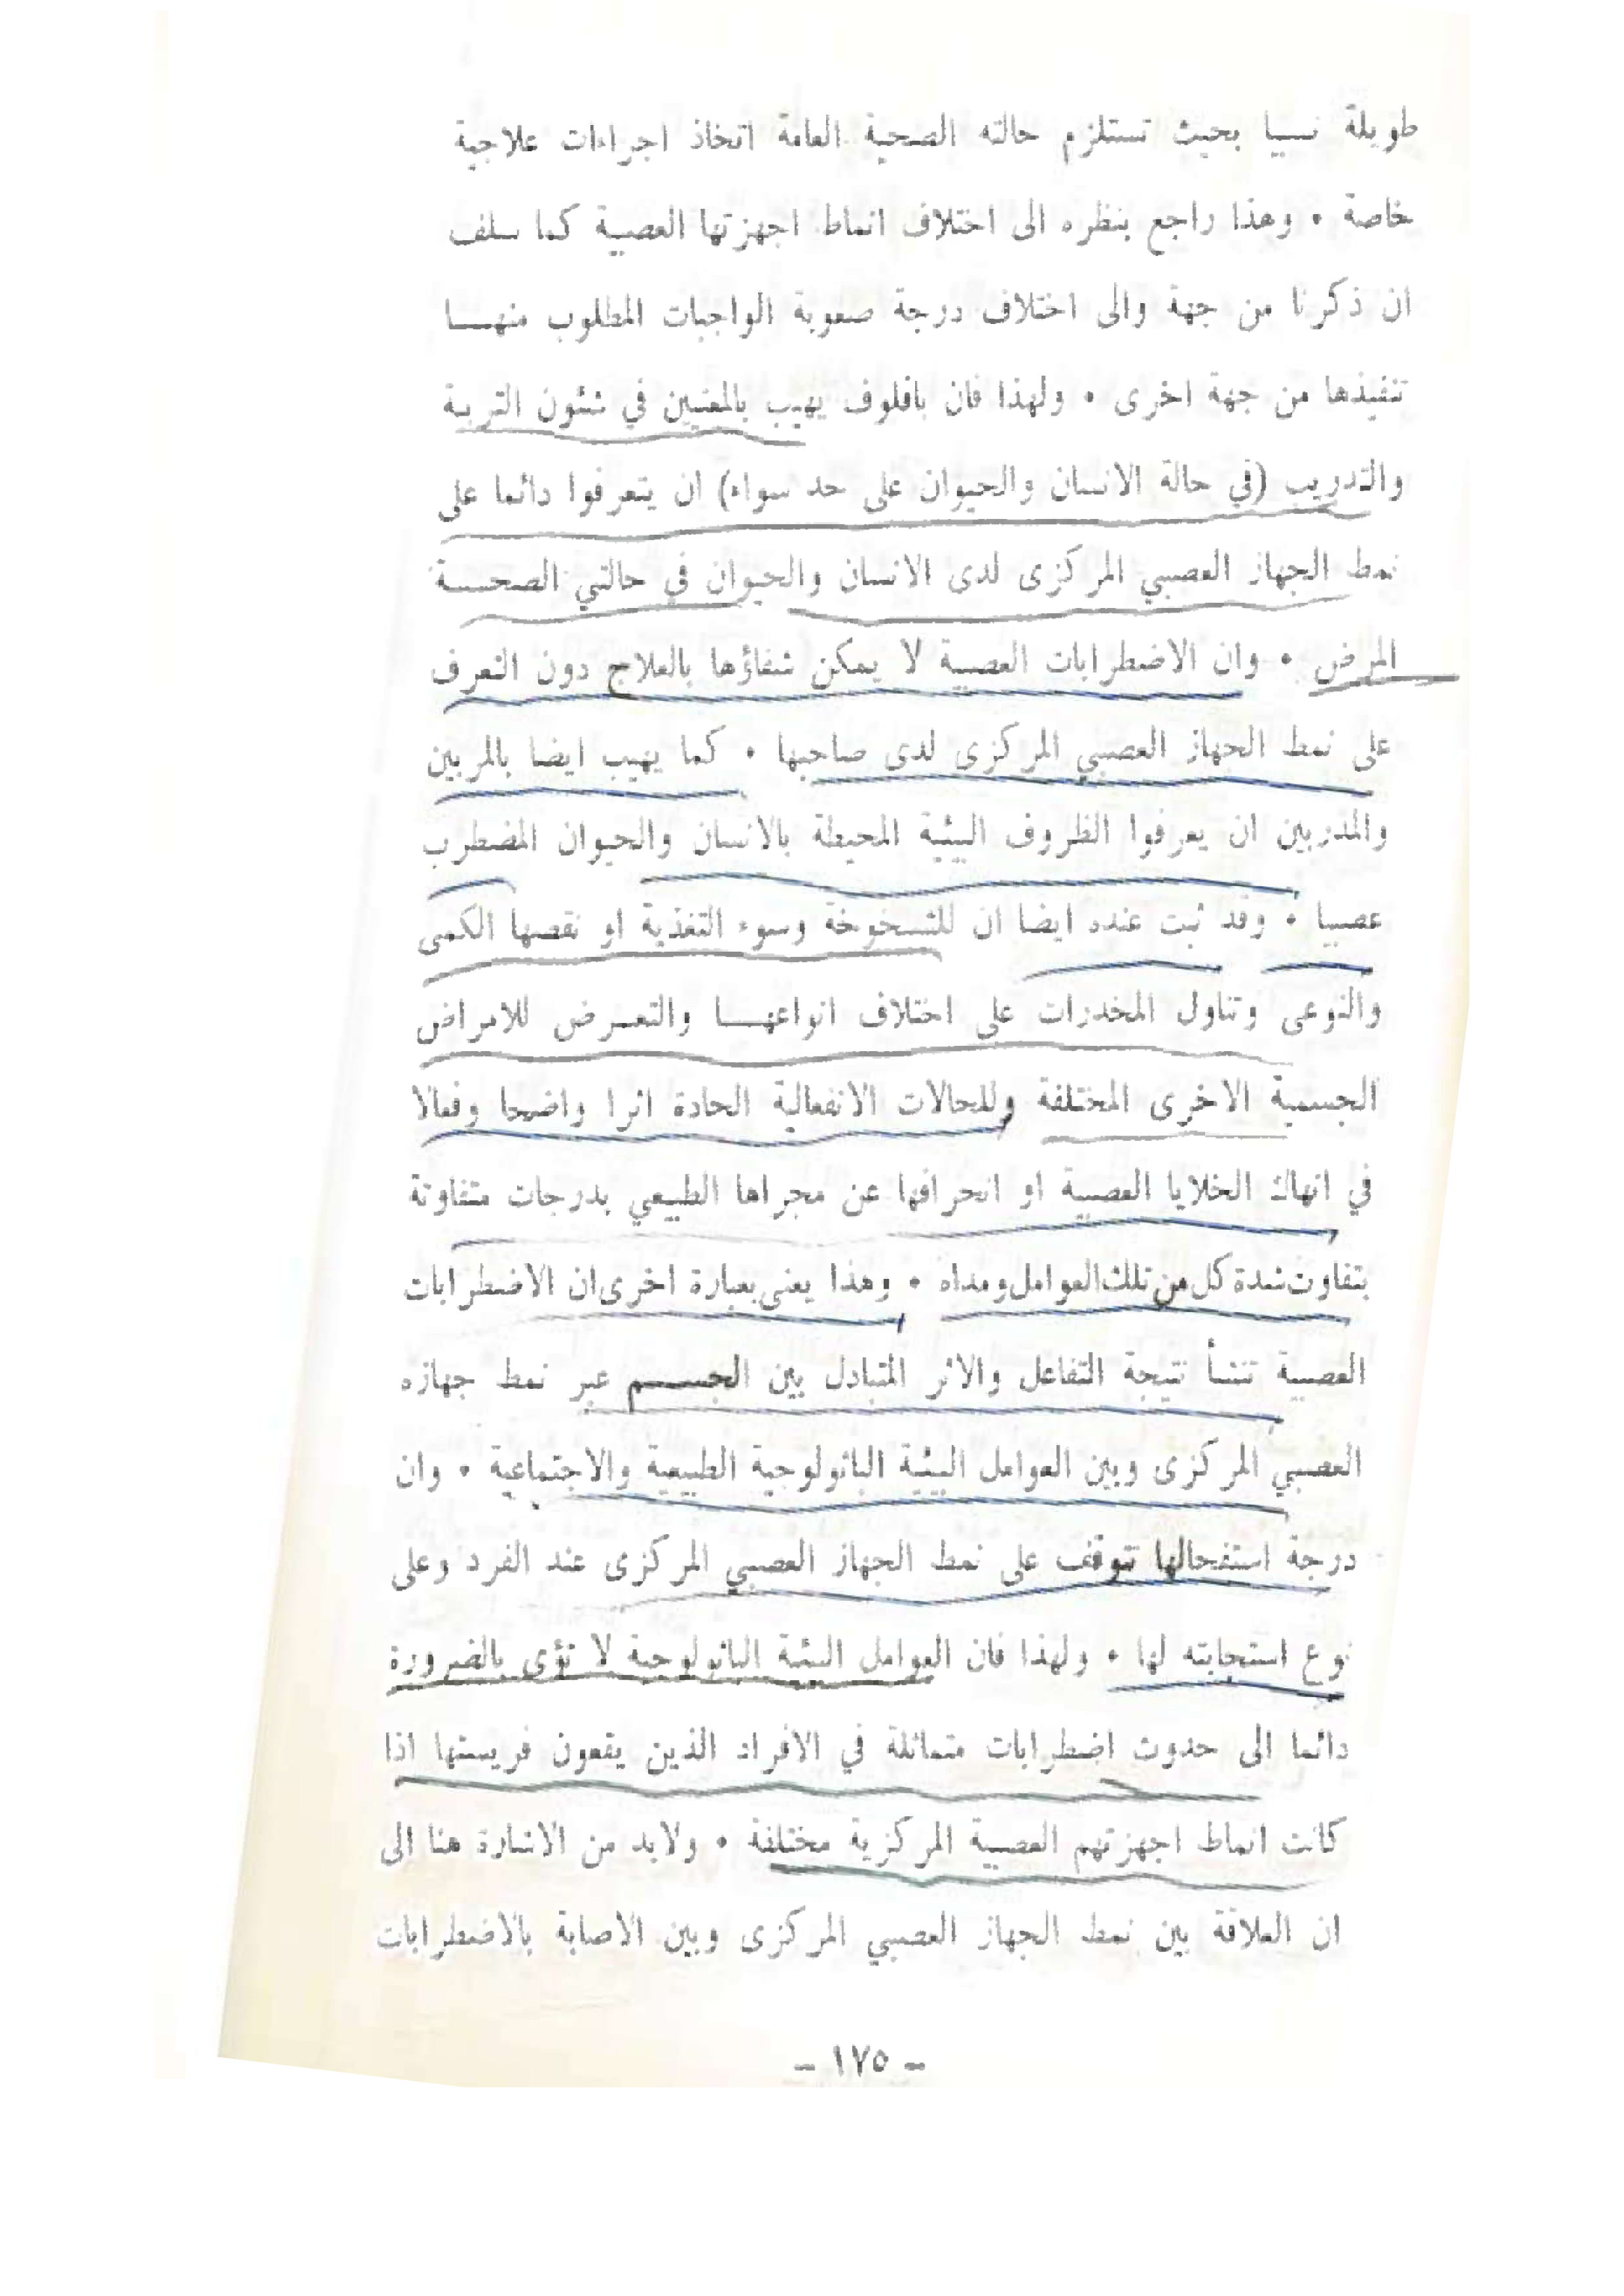 طويلة نسبيا بحيث تستلزم حالته الصحية العامة اتخاذ اجراءات علاجية
خاصة • وهذا راجع بنظره الى اختلاف انماط اجهزتها العصبية كما سلف
ان ذكرنا من جهة والى اختلاف درجة صعوبة الواجبات المطلوب منهـــا
تنفيذها من جهة اخرى • ولهذا فان بافلوف يهيب بالمعنيين في شئون التربية
والتدريب (في حالة الانسان والحيوان على حد سواء) ان يتعرفوا دائما على
نمط الجهاز العصبي المركزى لدى الانسان والحيوان في حالتي الصحـــة
المرض • وان الاضطرابات العصبية لا يمكن شفاؤها بالعلاج دون التعرف
على نمط الجهاز العصبي المركزى لدى صاحبها • كما يهيب ايضا بالمربين
والمدربين ان يعرفوا الظروف البيئية المحيطة بالانسان والحيوان المضطرب
عصبيا • وقد ثبت عنده ايضا ان للشيخوخة وسوء التغذية او نقصها الكمى
والنوعى وتناول المخدرات على اختلاف انواعهـــا والتعـرض للامراض
الجسمية الاخرى المختلفة وللحالات الانفعالية الحادة اثرا واضحا وفعالا
في انهاك الخلايا العصبية او انحرافها عن مجراها الطبيعي بدرجات متفاوتة
بتفاوت شدة كل من تلك العوامل ومداه • وهذا يعنى بعبارة اخرى ان الاضطرابات
العصبية تنشأ نتيجة التفاعل والاثر المتبادل بين الجســـم عبر نمط جهازه
العصبي المركزى وبين العوامل البيئية الباثولوجية الطبيعية والاجتماعية • وان
درجة استفحالها تتوقف على نمط الجهاز العصبي المركزى عند الفرد وعلى
نوع استجابته لها • ولهذا فان العوامل البيئية الباثولوجية لا تؤى بالضرورة
دائما الى حدوث اضطرابات متماثلة في الافراد الذين يقعون فريستها اذا
كانت انماط اجهزتهم العصبية المركزية مختلفة • ولابد من الاشارة هنا الى
ان العلاقة بين نمط الجهاز العصبي المركزى وبين الاصابة بالاضطرابات
- ١٧٥ -